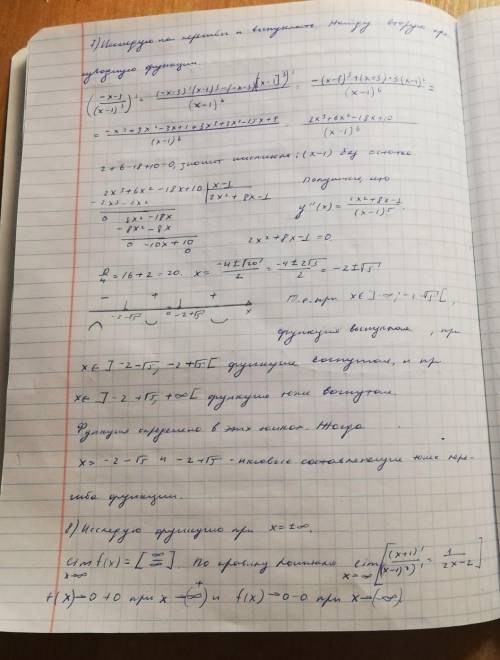 7) Исследую на перегибы и выпуклость. Найду вторую про-
изводную функции.
(-x-3/(x-1)³)' = (-x-3)'(x-1)³-(-x-3)[(x-1)³]'/(x-1)⁶ = -(x-1)³+(x+3)·3(x-1)²/(x-1)⁶ =
2+6-18+10=0, значит числитель : (x-1) без остатка
2x³+6x²-18x+10 | x-1
2x²+8x-1
0 8x²-18x
-8x²-8x
0 -10x+10
0
Получается, что
y''(x) = 2x²+8x-1/(x-1)⁵
2x²+8x-1=0.
D/4 = 16+2=20. x = -4±√20/2 = -4±2√5/2 = -2±√5
- + +
-2-√5 -2+√5 x
функция выпуклая, при
x∈]-2-√5, -2+√5[ функция вогнутая, и при
x∈]-2+√5, +∞[ функция тоже вогнутая.
Функция определена в этих точках. Тогда
x = -2-√5 и -2+√5 - иксовые составляющие точек пере-
гиба функции.
8) Исследую функцию при x=±∞.
lim f(x) = [∞/∞]. По правилу Лопиталя lim [(x+1)'/((x-1)²)' = 1/2x-2]
x→∞ x→∞
f(x)→0+0 при x→(+∞) и f(x)→0-0 при x→(-∞)